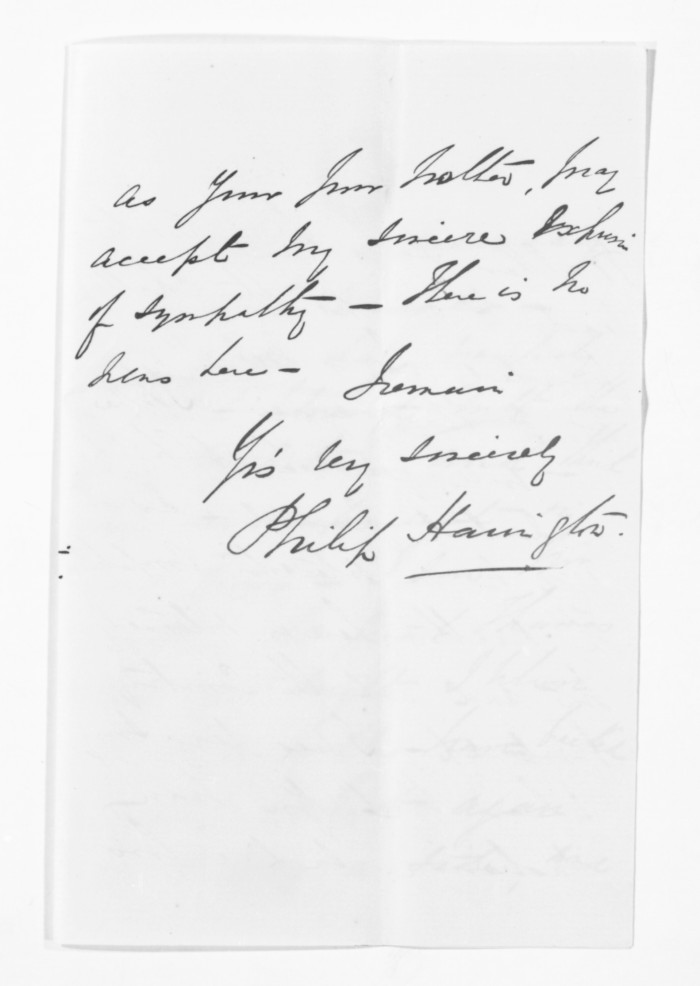 as your poor Mother, may
accept my sincere expression
of sympathy — There is no
news here — I remain
Yrs very sincerely
Philip Harington.